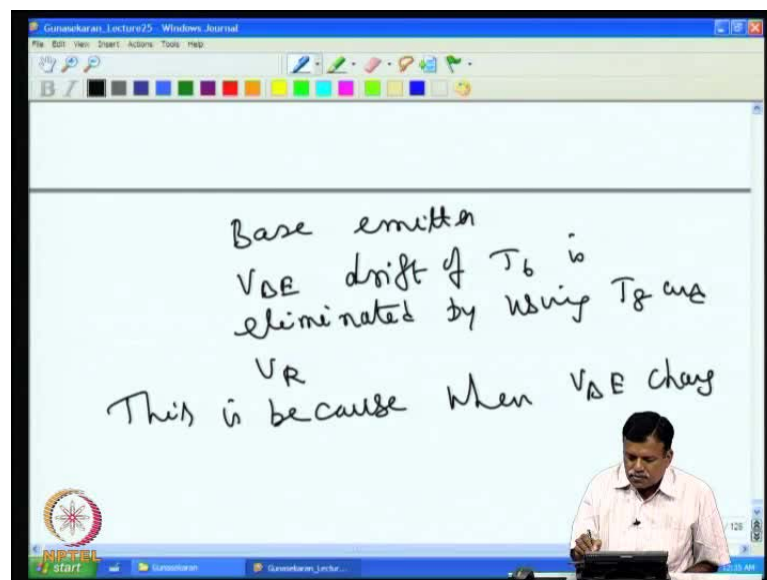 Gunasekaran_Lecture25 - Windows Journal
File Edit View Insert Actions Tools Help
B I
Base emitter
VBE drift of T6 is
eliminated by using T8 and
VR
This is because when VBE chang
/ 126
NPTEL
start Gunasekaran Gunasekaran_Lectur... 12:35 AM